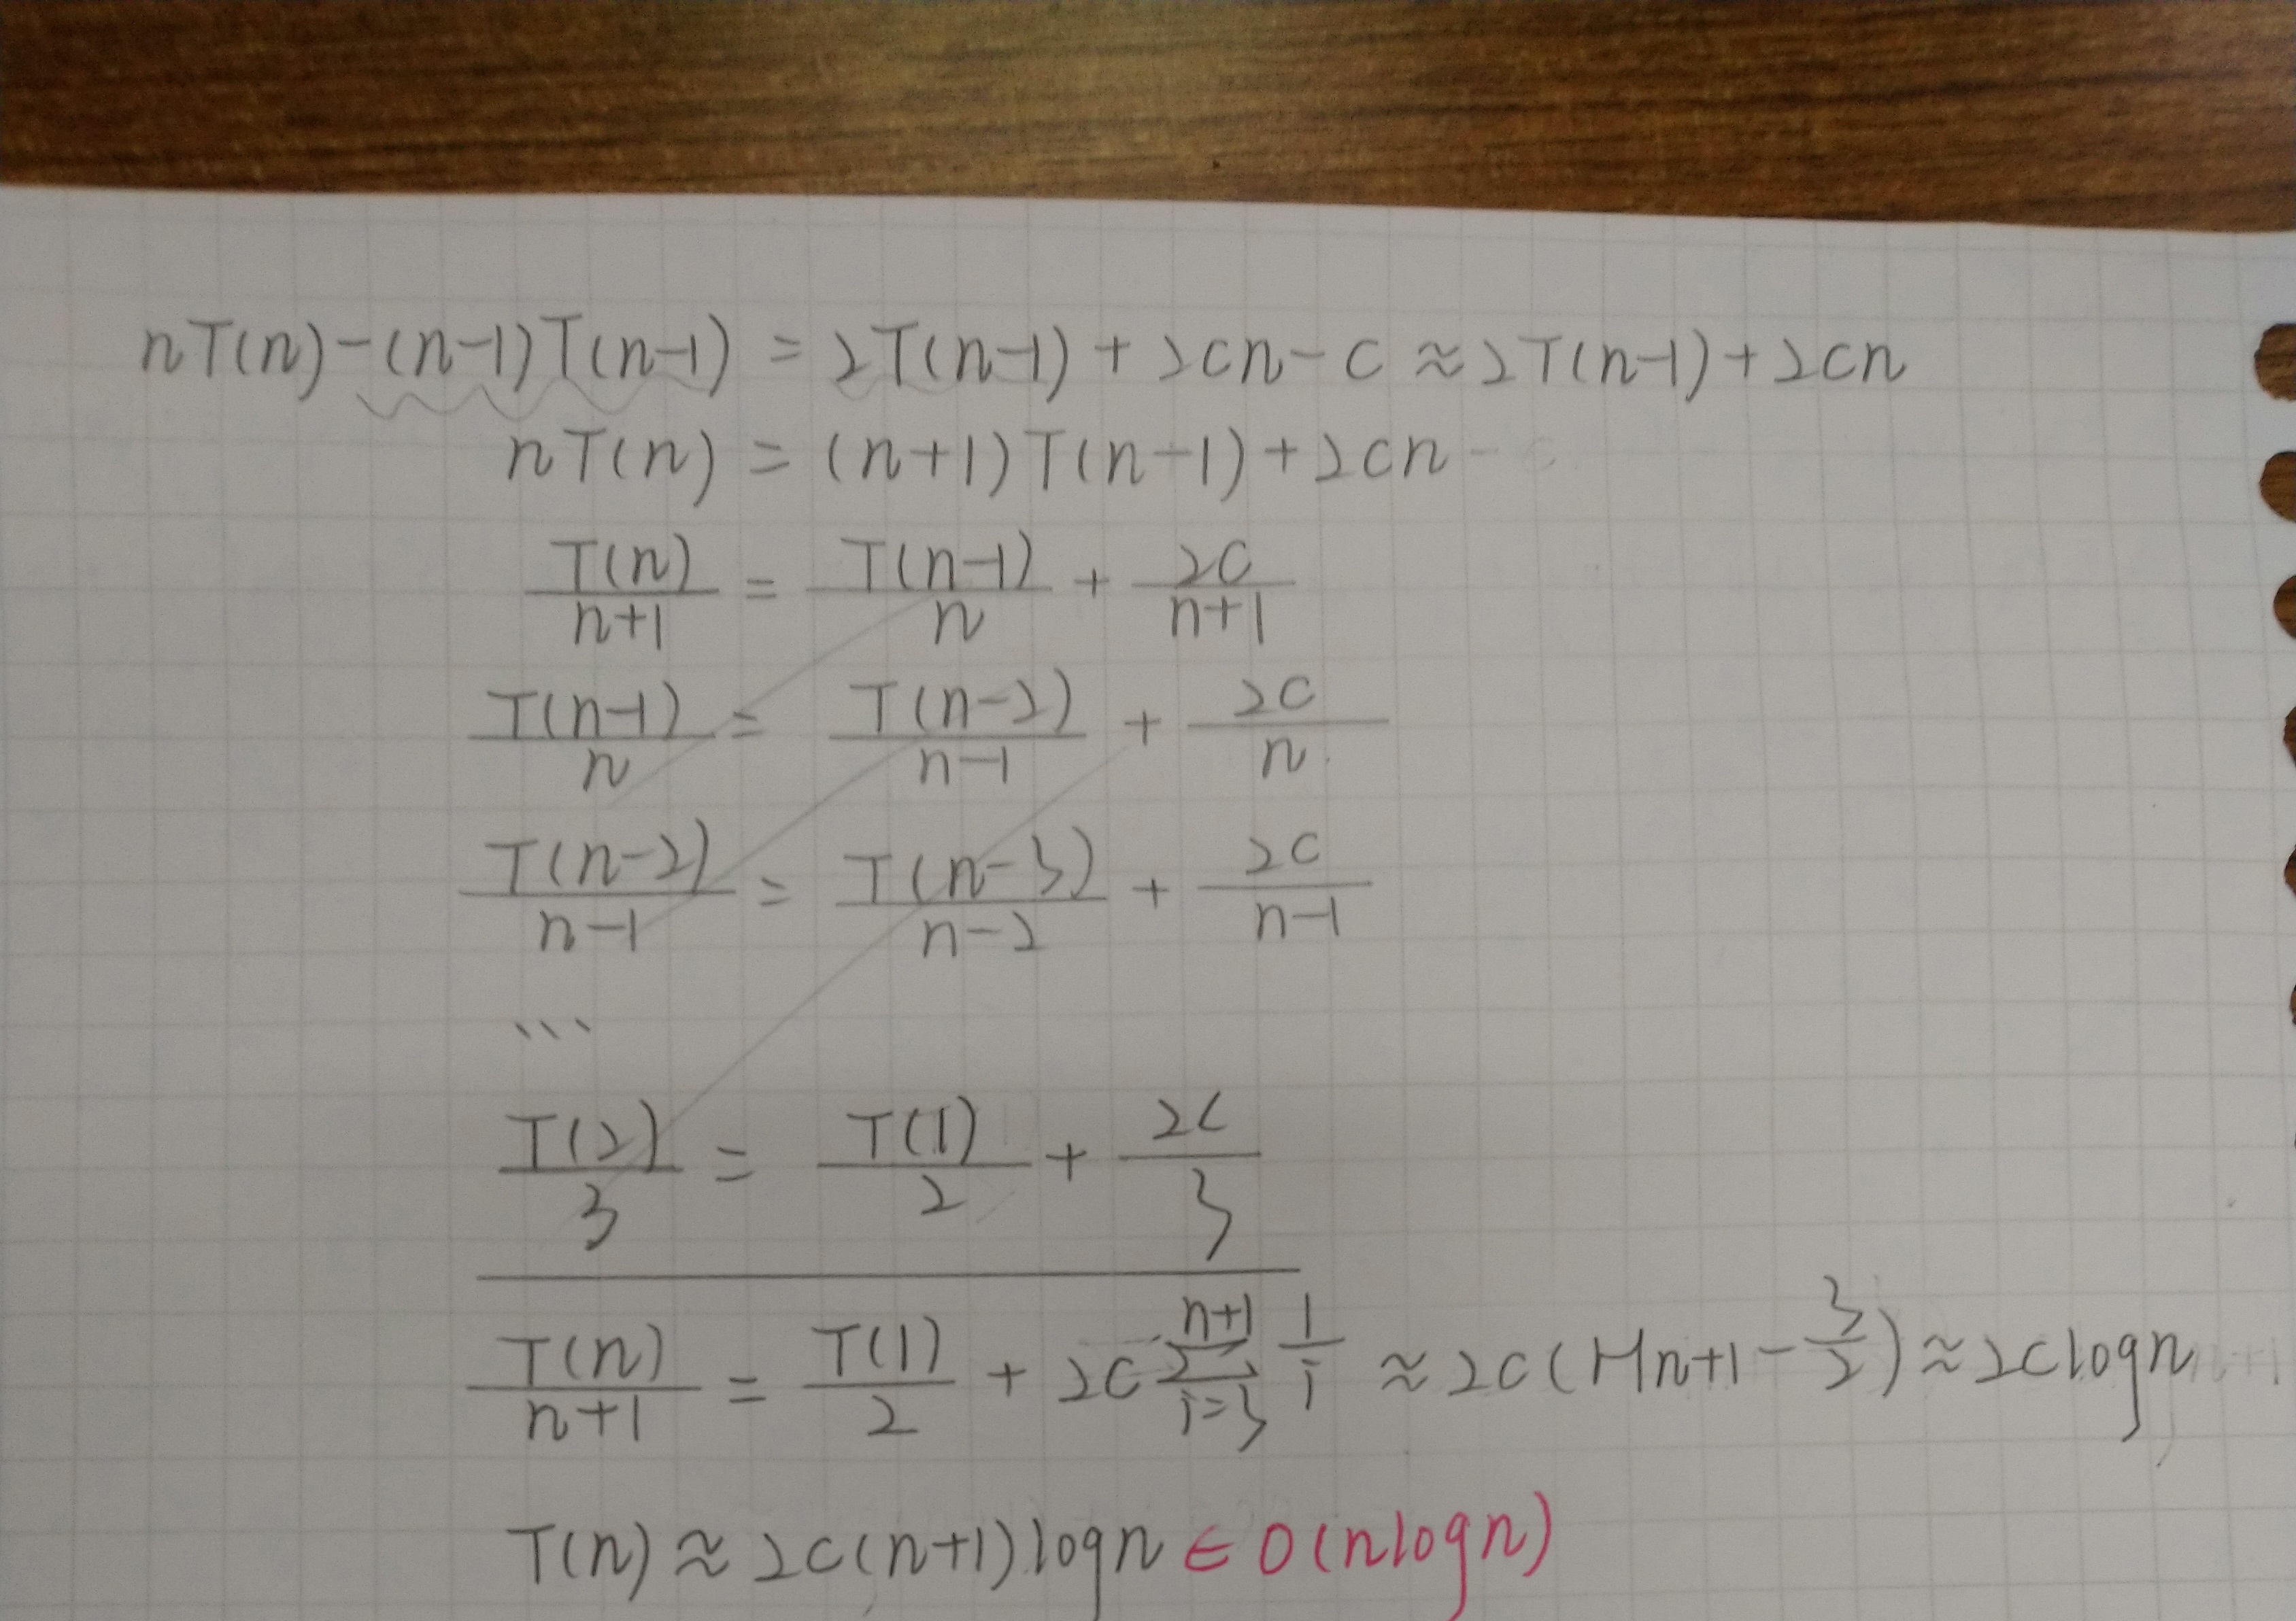 nT(n)-(n-1)T(n-1) = 2T(n-1) + 2cn - c ≈ 2T(n-1) + 2cn
nT(n) = (n+1)T(n-1) + 2cn
T(n)/(n+1) = T(n-1)/n + 2c/(n+1)
T(n-1)/n = T(n-2)/(n-1) + 2c/n
T(n-2)/(n-1) = T(n-3)/(n-2) + 2c/(n-1)
...
T(2)/3 = T(1)/2 + 2c/3
T(n)/(n+1) = T(1)/2 + 2c ∑_{i=3}^{n+1} 1/i ≈ 2c(Hn+1 - 3/2) ≈ 2clogn
T(n) ≈ 2c(n+1)logn ∈ O(nlogn)